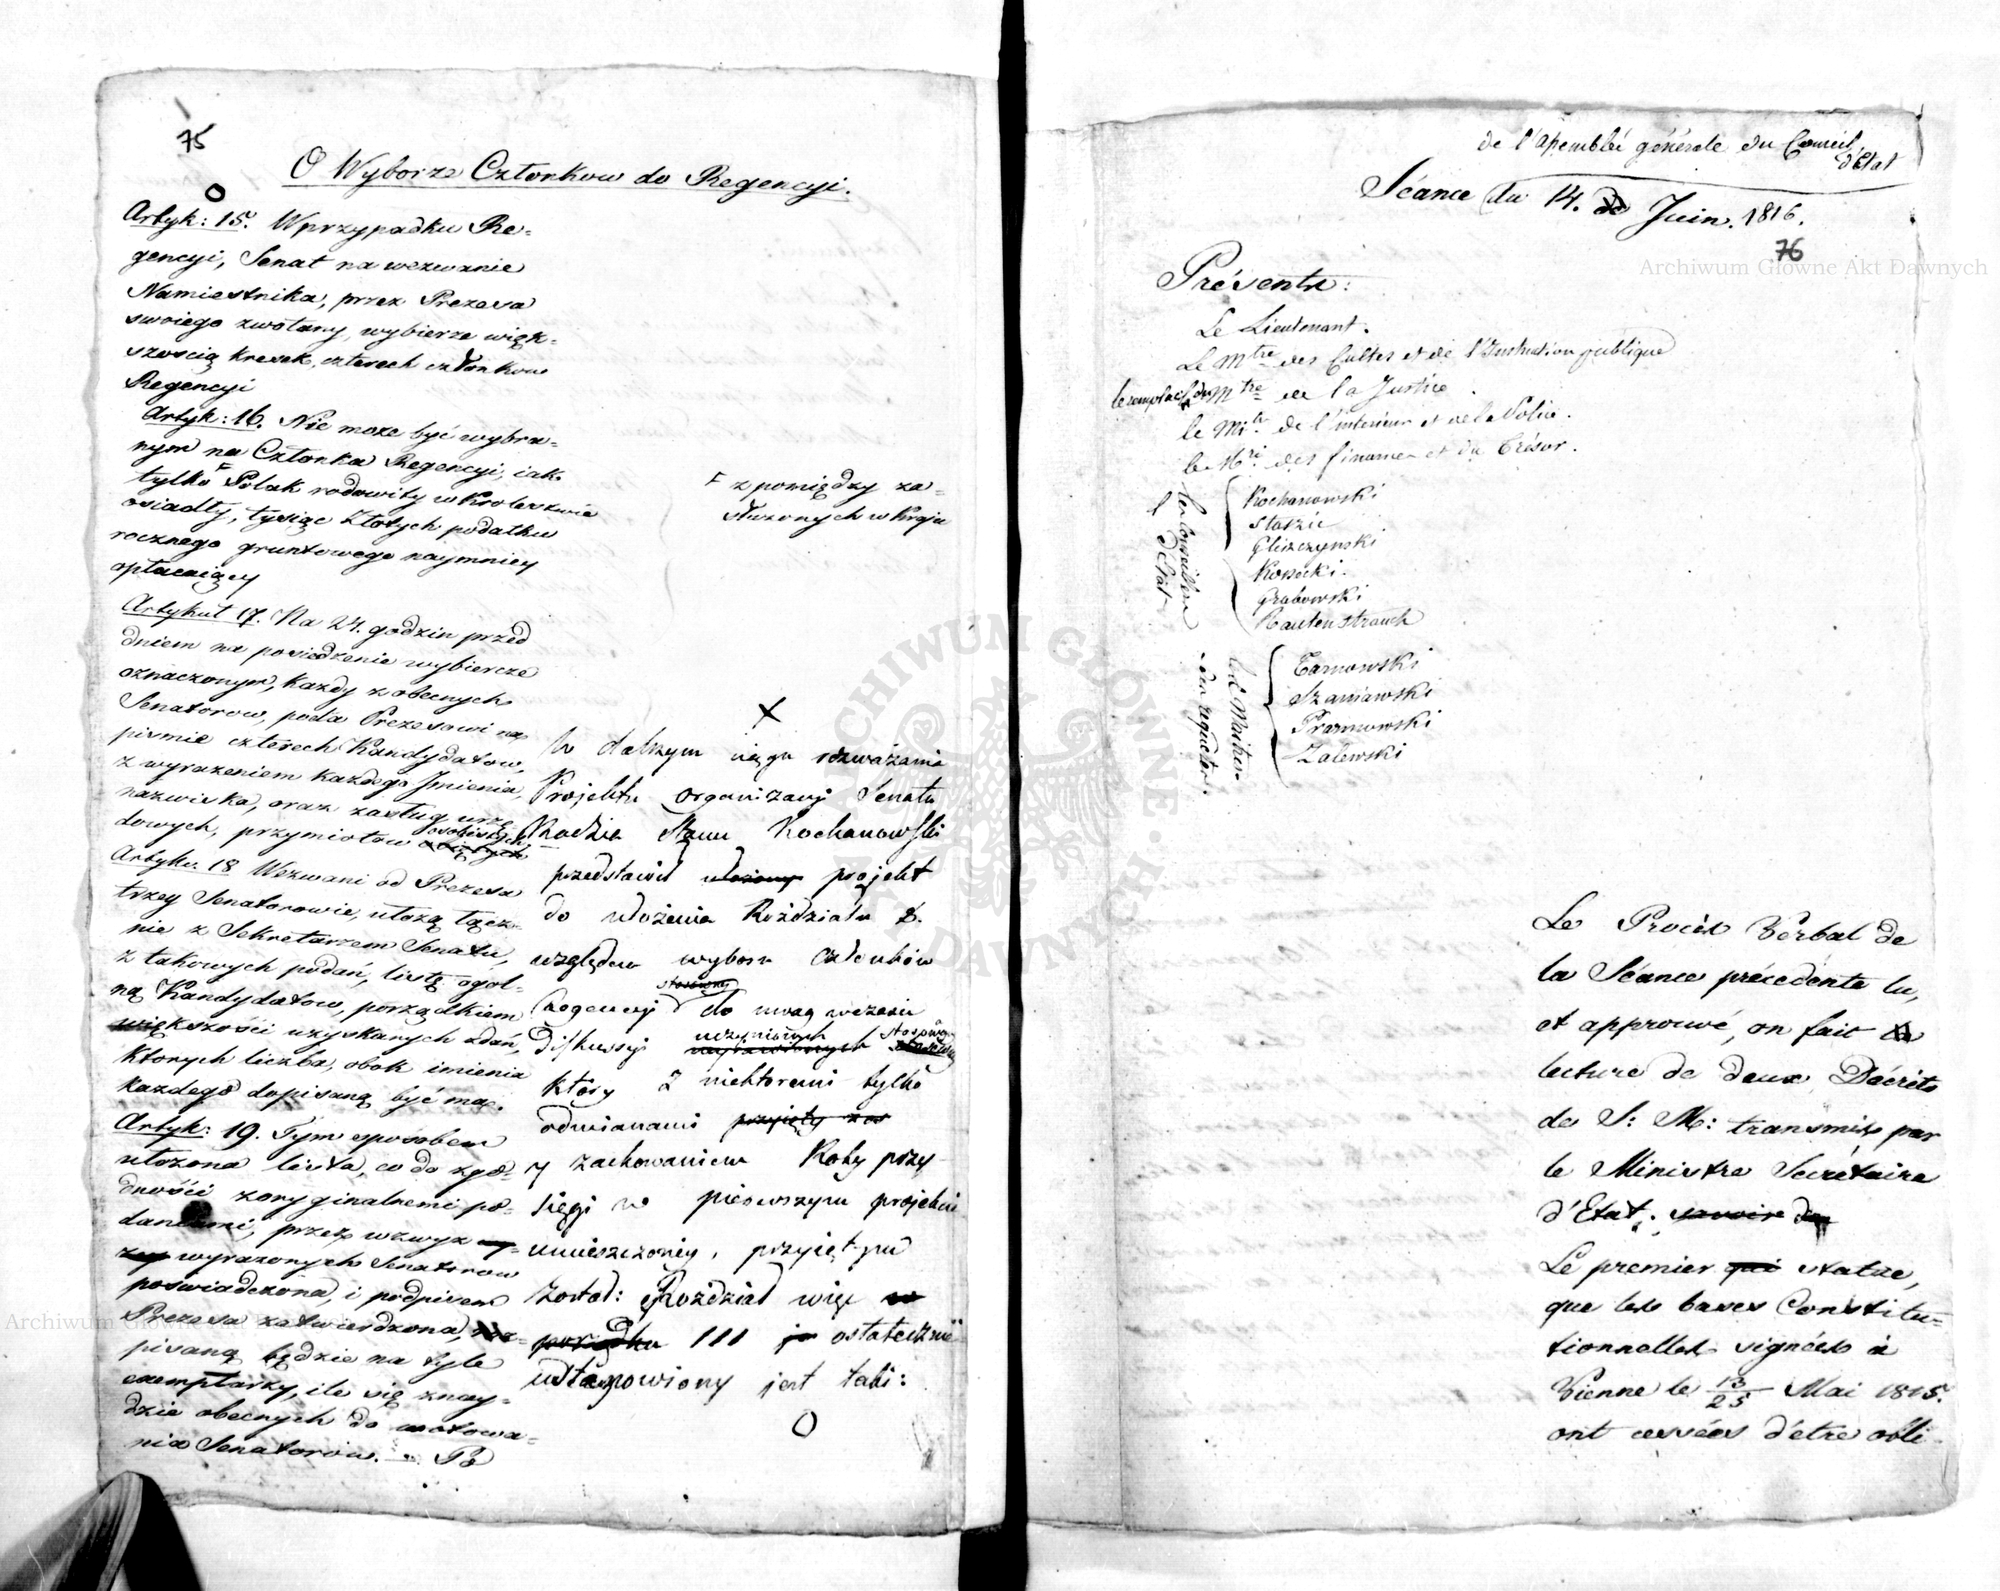 75
O Wyborze Członkow do Regencyi.
O
Artyk: 15. W przypadku Re-
gencyi, Senat na wezwanie
Namiestnika, przez Prezesa
swoiego zwołany, wybierze więk-
szoscią kresek, czterech członkow
Regencyi
Artyk: 16. Nie moze być wybra-
nym na Członka Regencyi, iak
tylko F Polak rodowity w Krolestwie
osiadły, tysiąc złotych podatku
rocznego gruntowego naymniey
opłacaiący
F z pomiędzy za-
służonych w Kraju
Artykuł 17. Na 24. godzin przed
dniem na posiedzenie wybiercze
oznaczonym, każdy z obecnych
Senatorow, poda Prezesowi na
pismie czterech Kandydatow,
z wyrazeniem każdego Imienia,
nazwiska, oraz zasług urzę-
dowych, przymiotow osobistych
Artyku. 18 Wezwani od Prezesa
trzey Senatorowie, ułożą łącz-
nie z Sekretarzem Senatu,
z takowych podań, listę ogol-
ną Kandydatow, porządkiem
większości uzyskanych zdań,
ktorych liczba, obok imienia
kazdego dopisaną być ma.
Artyk: 19. Tym sposobem
ułożona lista, co do zgo-
dności z oryginalnemi po-
daniami, przez wzwyz
wyrazonych Senatorow
poswiadczona, i podpisem
Prezesa zatwierdzona,
pisaną będzie na tyle
exemplarzy, ile się znay-
dzie obecnych do wotowa-
nia Senatorow. Po
X
W dalszym ciągu rozważania
Projektu organizacyi Senatu
Radzca Stanu Kochanowski
przedstawił ułożony projekt
do ułożenia Rozdziału
względem wyboru członków
Regencyi stosowny do uwag wczasie
diskussyi uczynionych
który z niektoremi tylko
odmianami przyięty zos
y zachowaniem Roty przy-
sięgi w pierwszym projekcie
umieszczoney, przyiętym
został: Rozdział więc
porządku III ostatecznie
ustanowiony jest taki:
O
de l'Assemblée générale du Conseil
d'État
Séance du 14. de Juin. 1816.
76
Présents:
Le Lieutenant.
Le Mtre des Cultes et de l'Instruction publique
le remplaç. du Mtre de la Justice.
le Mtre de l'intérieur et de la Police.
le Mtre des finances et du Trésor.
les Conseillers
d'Etat
Kochanowski
Staszic
Gliszczynski
Kossecki.
Grabowski
Rautenstrauch
les Maitres
des requetes.
Tarnowski
Szaniawski
Prazmowski
Zalewski
Le Procès Verbal de
la Séance précédente lu,
et approuvé, on fait la
lecture de deux Décrets
de S: M: transmis par
le Ministre Secrétaire
d'Etat; savoir de
Le premier qui statue,
que les bases Constitu-
tionnelles signées à
Vienne le 13/25 Mai 1815.
ont cessées d'être obli-
Archiwum Główne Akt Dawnych
Archiwum Główne Akt Dawnych
ARCHIWUM GŁÓWNE AKT DAWNYCH